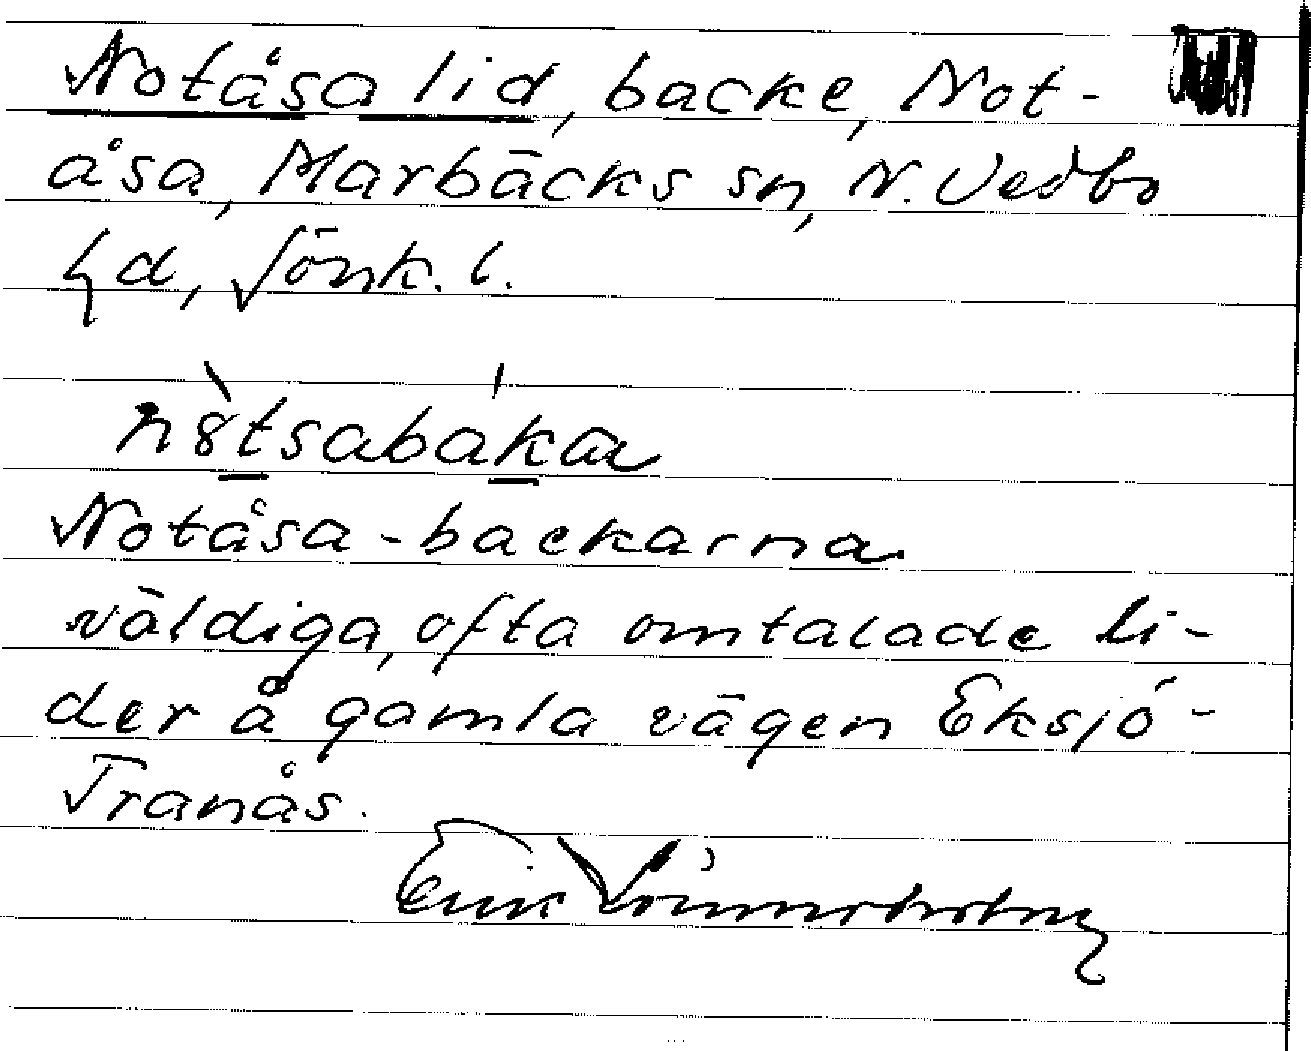 Notåsa lid, backe, Not-
åsa, Marbäcks sn, N. Vedbo
hd, Jönk. l.
nȣ̀tsabákaa
Notåsa-backarna
väldiga, ofta omtalade li-
der å gamla vägen Eksjö-
Tranås.
Erik